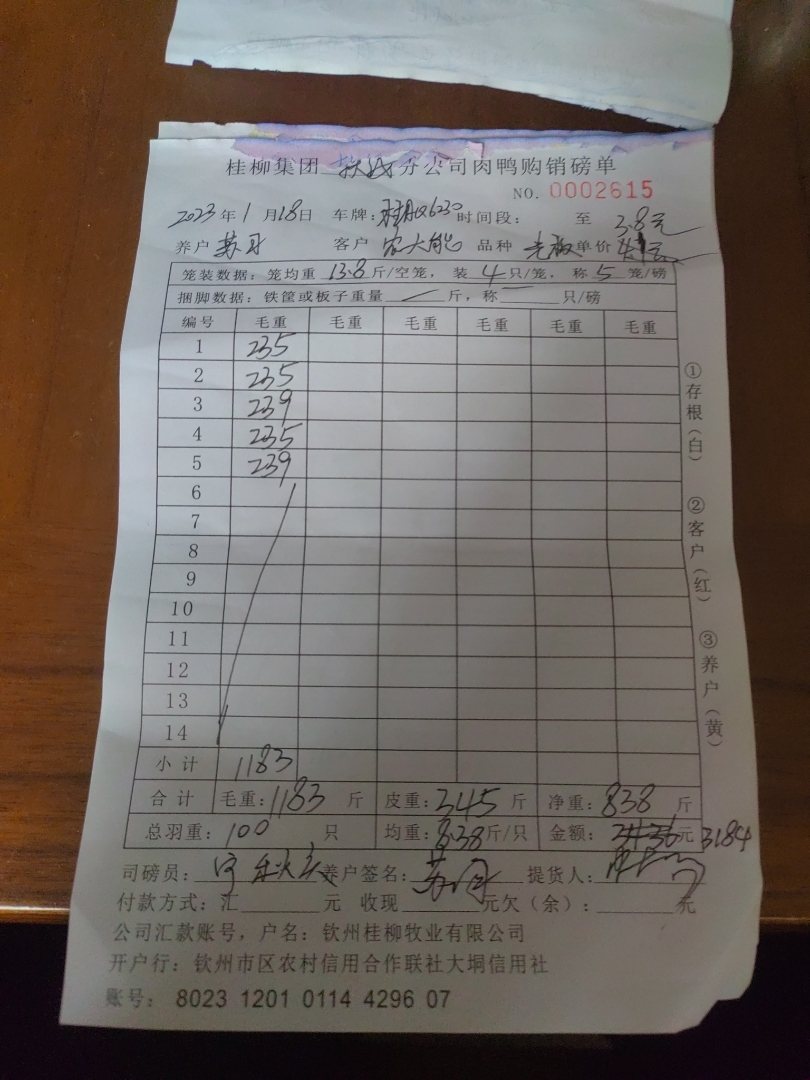 桂柳集团 钦州 分公司肉鸭购销磅单
NO. 0002615
2023年1月18日 车牌: 时间段: 至 3.8元
养户 苏月 客户 农大能 品种 单价
笼装数据: 笼均重 13.8 斤/空笼, 装 4 只/笼, 称 5 笼/磅
捆脚数据: 铁筐或板子重量 — 斤, 称 — 只/磅
编号 毛重 毛重 毛重 毛重 毛重 毛重
1 235
2 235
3 239
4 235
5 239
6
7
8
9
10
11
12
13
14
小计 1183
合计 毛重: 1183 斤 皮重: 345 斤 净重: 838 斤
总羽重: 100 只 均重: 8.38 斤/只 金额: 元 3184
司磅员: 养户签名: 苏月 提货人:
付款方式: 汇 元 收现 元欠(余): 元
公司汇款账号, 户名: 钦州桂柳牧业有限公司
开户行: 钦州市区农村信用合作联社大垌信用社
账号: 8023 1201 0114 4296 07
①存根(白) ②客户(红) ③养户(黄)